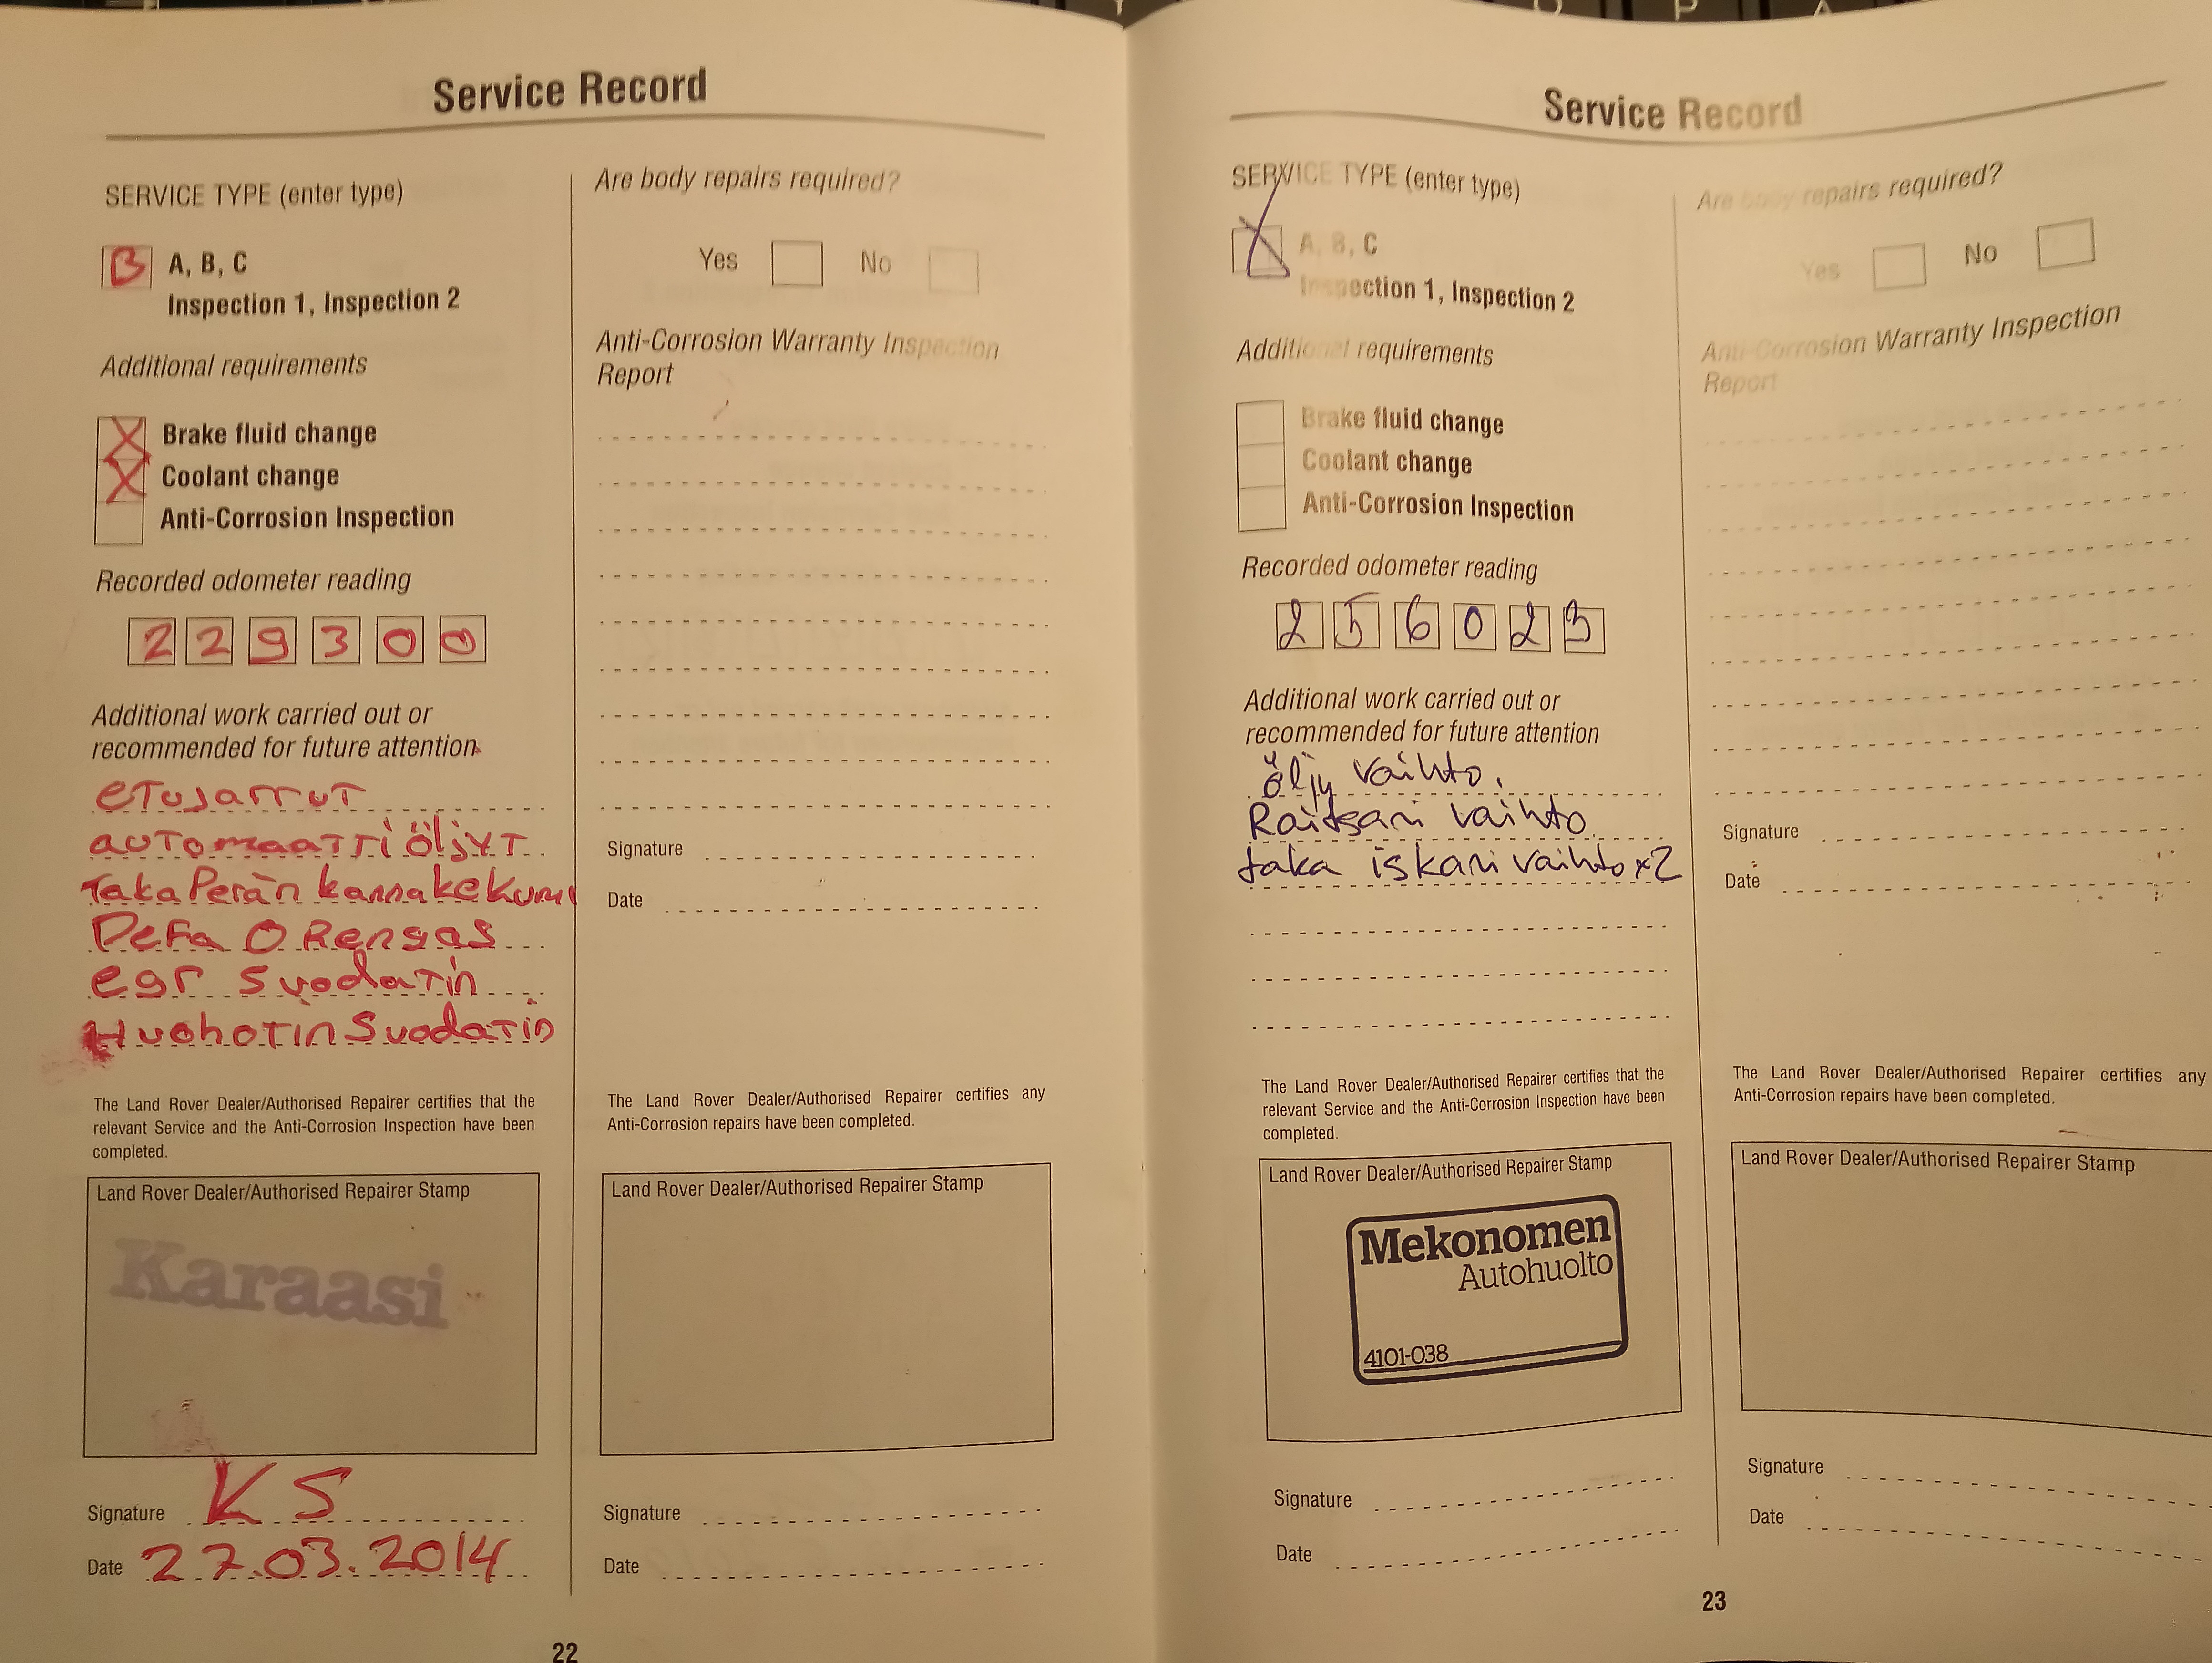 Service Record
SERVICE TYPE (enter type)
B A, B, C
Inspection 1, Inspection 2
Additional requirements
X Brake fluid change
X Coolant change
Anti-Corrosion Inspection
Recorded odometer reading
2 2 9 3 0 0
Additional work carried out or
recommended for future attention
etujarrut
automaatti öljyt
Taka Perän kannake kumi
Defa O Rengas
egr suodatin
Huohotin Suodatin
The Land Rover Dealer/Authorised Repairer certifies that the
relevant Service and the Anti-Corrosion Inspection have been
completed.
Land Rover Dealer/Authorised Repairer Stamp
Karaasi
Signature KS
Date 27.03.2014
Are body repairs required?
Yes No
Anti-Corrosion Warranty Inspection
Report
Signature
Date
The Land Rover Dealer/Authorised Repairer certifies any
Anti-Corrosion repairs have been completed.
Land Rover Dealer/Authorised Repairer Stamp
Signature
Date
22
Service Record
SERVICE TYPE (enter type)
X A, B, C
Inspection 1, Inspection 2
Additional requirements
Brake fluid change
Coolant change
Anti-Corrosion Inspection
Recorded odometer reading
2 5 6 0 2 3
Additional work carried out or
recommended for future attention
öljy vaihto.
Raitsari vaihto
taka iskari vaihto x2
The Land Rover Dealer/Authorised Repairer certifies that the
relevant Service and the Anti-Corrosion Inspection have been
completed.
Land Rover Dealer/Authorised Repairer Stamp
Mekonomen
Autohuolto
4101-038
Signature
Date
Are body repairs required?
Yes No
Anti-Corrosion Warranty Inspection
Report
Signature
Date
The Land Rover Dealer/Authorised Repairer certifies any
Anti-Corrosion repairs have been completed.
Land Rover Dealer/Authorised Repairer Stamp
Signature
Date
23